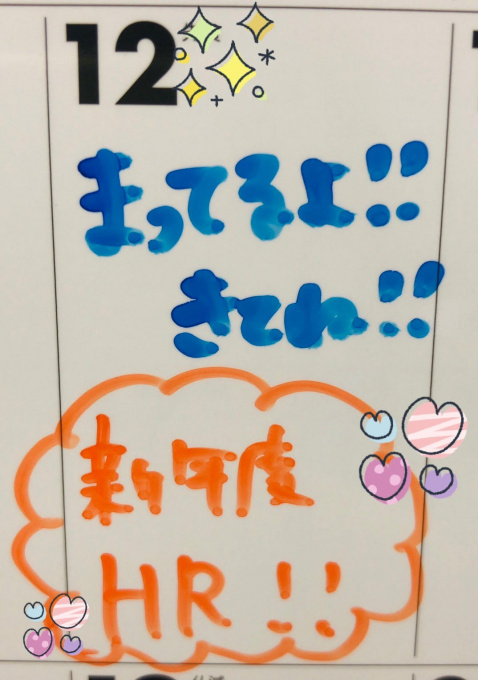 12
まってるよ!!
きてね!!
新年度
HR!!